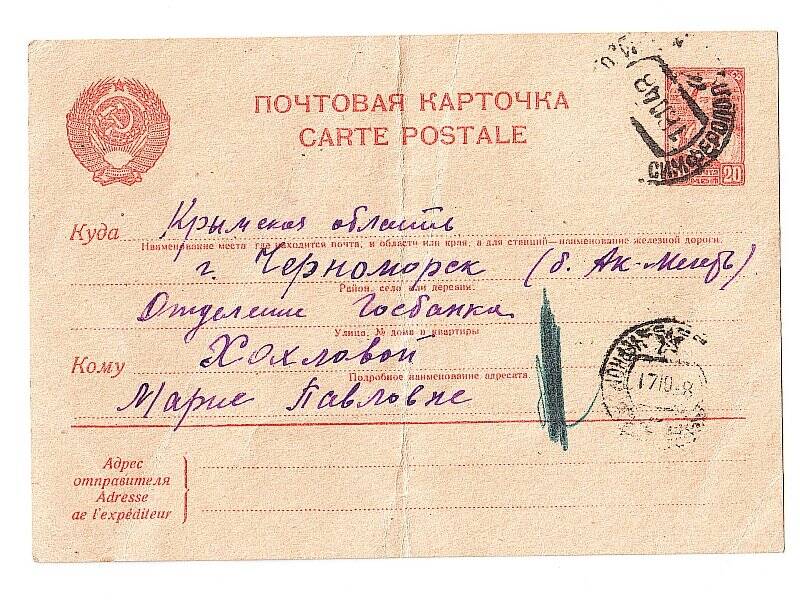 ПОЧТОВАЯ КАРТОЧКА
CARTE POSTALE
20
СИМФЕРОПОЛЬ
Куда Крымская область
Наименование места где находится почта, и области или края, а для станций—наименование железной дороги.
г. Черноморск (б. Ак-Мечеть)
Район, село или деревня.
Отделение Госбанка
Улица, № дома и квартиры
Кому Хохловой
Подробное наименование адресата.
Марие Павловне
17 10 8
Адрес
отправителя
Adresse
de l'expéditeur